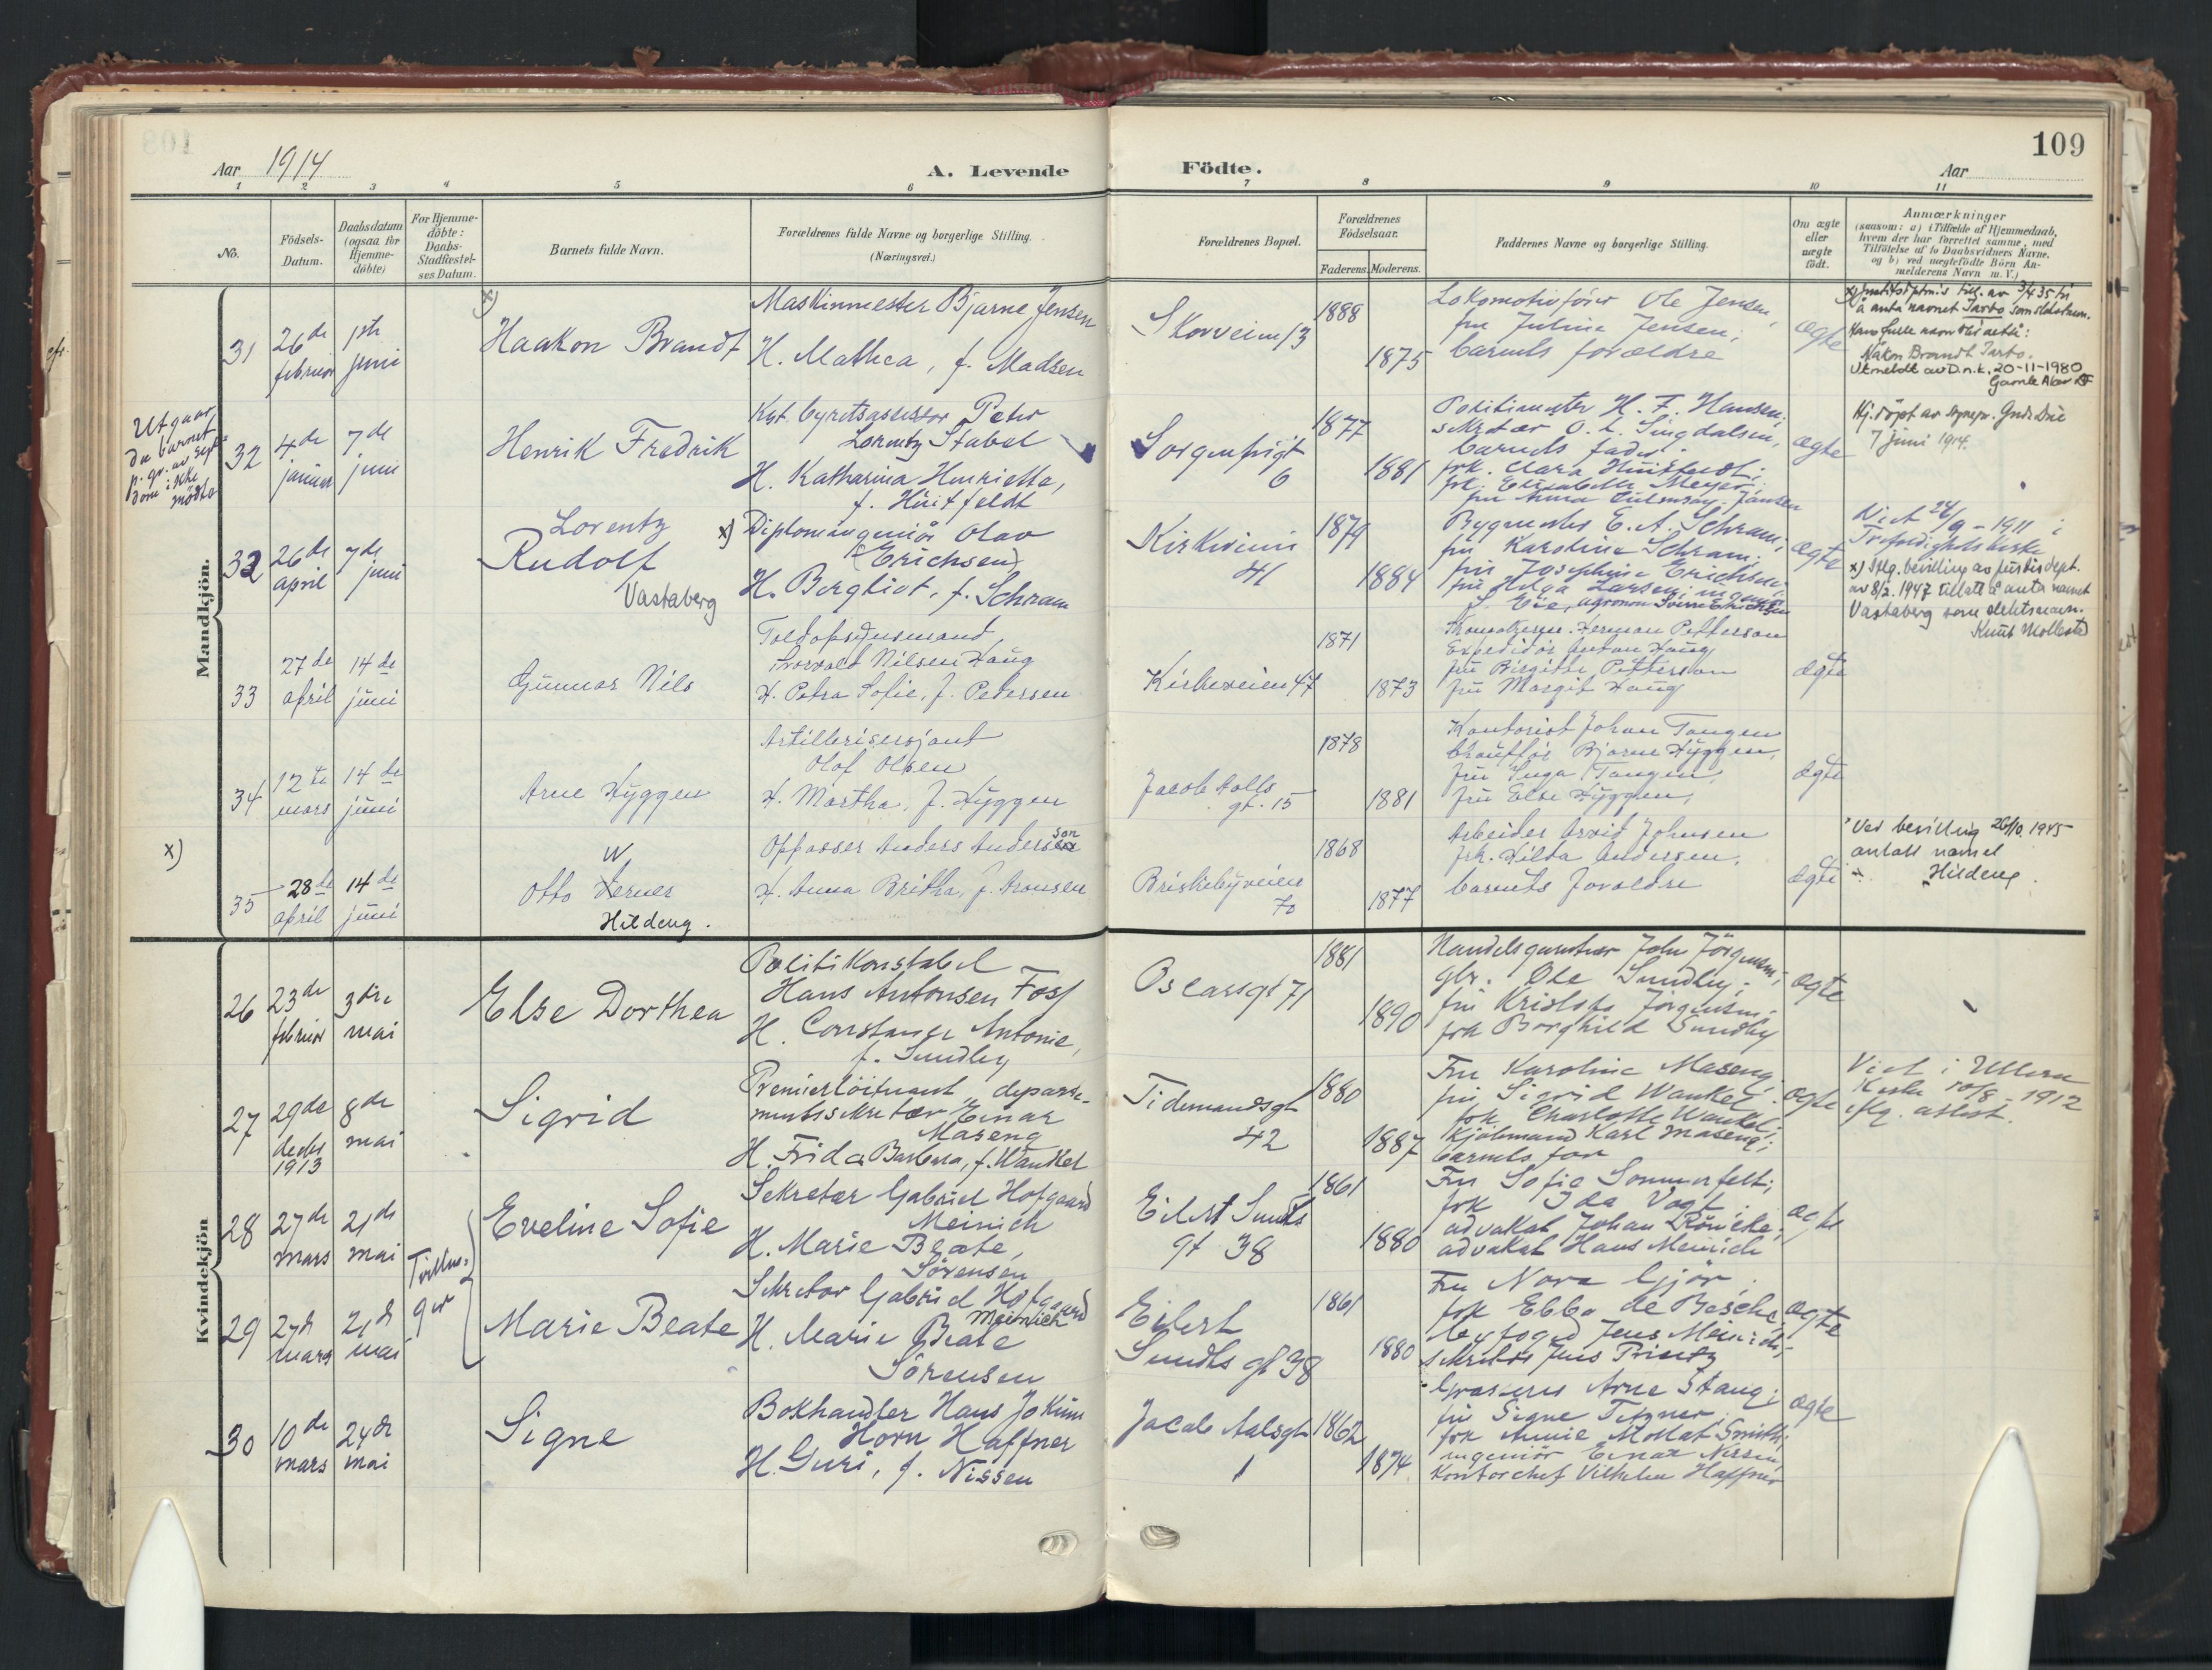 109
Aar 1914
A. Levende Födte.
Aar
1 2 3 4 5 6 7 8 9 10 11
No.
Födsels-
Datum.
Daabsdatum
(ogsaa for
Hjemme-
döbte)
For Hjemme-
döbte:
Daabs-
Stadfæstel-
ses Datum.
Barnets fulde Navn.
Forældrenes fulde Navne og borgerlige Stilling.
(Næringsvei.)
Forældrenes Bopæl.
Forældrenes
Födselsaar.
Faderens. Moderens.
Faddernes Navne og borgerlige Stilling.
Om ægte
eller
uægte
födt.
Anmærkninger
(saasom: a) i Tilfælde af Hjemmedaab,
hvem der har forrettet samme, med
Tilföielse af to Daabsvidners Navne.
og b) ved uægtefödte Börn An-
melderens Navn m. V.)
Mandkjön.
31
26de
februar
juni
x)
Haakon Brandt
Maskinmester Bjarne Jensen
H. Mathea, f. Madsen
Skovveien 13
1888
1875
Lokomotivförer Ole Jensen,
fru Juline Jensen;
barnets forældre
ægte
å anta navnet Tarbo som slektsnavn.
Hans fulle navn blir etter:
Håkon Brandt Tarbo.
Utmeldt av D.n.k. 20-11-1980
Gamle Aker
Utgaar,
da barnet
ikke
mödte
32
4de
januar
7de
juni
Henrik Fredrik
Peter
Lorentz Stabel
H. Katharina Henriette,
f. Huitfeldt
Sorgenfrigt
6
1877
1881
Politimester H. F. Hansen;
sekretær O. L. Singdalsen,
barnets fader;
frk. Clara Huitfeldt;
frk. Elisabeth Meyer;
ægte
7 juni 1914.
32
26de
april
7de
juni
Lorentz
Rudolf
Vastaberg
x) Diplomingeniör Olav
(Erichsen)
H. Bergliot, f. Schram
Kirkeveien
41
1879
1884
Bygmester E. A. Schram;
fru Karoline Schram;
fru Josephine Erichsen;
fru Helga Larsen; ingeniör
ægte
Viet 24/9 - 1911 i
Trefoldighets kirke
x) Iflg. bevilling av Justisdept.
av 8/2. 1947 tillatt å anta navnet
Vastaberg som slektsnavn.
Knut Mollestad
33
27de
april
14de
juni
Gunnar Nils
Toldopsynsmand
Thorvald Nilsen Haug
H. Petra Sofie, f. Petersen
Kirkeveien 47
1871
1873
Herman Petterson
Expeditör Anton Haug
fru Birgitte Petterson
fru Margit Haug
ægte
34
12te
mars
14de
juni
Arne Hyggen
Artillerisersjant
Olof Olsen
H. Martha, f. Hyggen
Jacob Aalls
gt. 15
1878
1881
Kontorist Johan Tangen
Chauffør Bjarne Hyggen,
fru Inga Tangen,
fru Else Hyggen,
ægte
x)
35
28de
april
14de
juni
W
Otto Verner
Hildeng.
Oppasser Anders Anderssen
son
H. Anna Britha, f. Aronsen
Briskebyveien
70
1868
1877
Arbeider Arvid Johnsen
frk. Hilda Andersen,
barnets forældre
ægte
Ved bevilling 26/10 1945
antatt navnet
Hildeng.
Kvindekjön
26
23de
februar
3die
mai
Else Dorthea
Politikonstabel
Hans Antonsen Foss
H. Constance Antonie,
f. Sundby
Oscarsgt 71
1881
1890
John Jörgensen;
Ole Sundby;
fru Kristofa Jörgensen;
frk Borghild Sundby
ægte
27
29de
decbr
1913
8de
mai
Sigrid
Premierlöitnant, departe-
mentssekretær Einar
Maseng
H. Frida Barbara, f. Wankel
Tidemandsgt
42
1880
1887
Fru Karoline Maseng;
fru Sigrid Wankel;
frk Charlotte Wankel;
Kjöbmand Karl Maseng;
barnets far
ægte
Viet i Ullern
Kirke 10/8 - 1912
iflg. attest.
28
27de
mars
21de
mai
Tvillin-
ger
Eveline Sofie
Sekretær Gabriel Hofgaard
Meinich
H. Marie Beate,
Sörensen
Eilert Sundts
gt 38
1861
1880
Fru Sofie Sommerfelt;
frk Ida Vogt;
advokat Johan Rönneke;
advokat Hans Meinich
ægte
29
27de
mars
21de
mai
Marie Beate
Sekretær Gabriel Hofgaard
Meinich
H. Marie Beate
Sörensen
Eilert
Sundts gt 38
1861
1880
Fru Nora Gjör;
frk Ebba de Besche;
byfoged Jens Meinich;
sekretær Jens Printz
ægte
30
10de
mars
24de
mai
Signe
Bokhandler Hans Jokum
Horn Haffner
H. Guri, f. Nissen
Jacob Aalsgt
1
1862
1874
Grosserer Arne Stang;
fru Signe Titzner;
frk Annie Moltat Smith;
ingeniör Einar Nissen,
Kontorchef Vilhelm Haffner
ægte